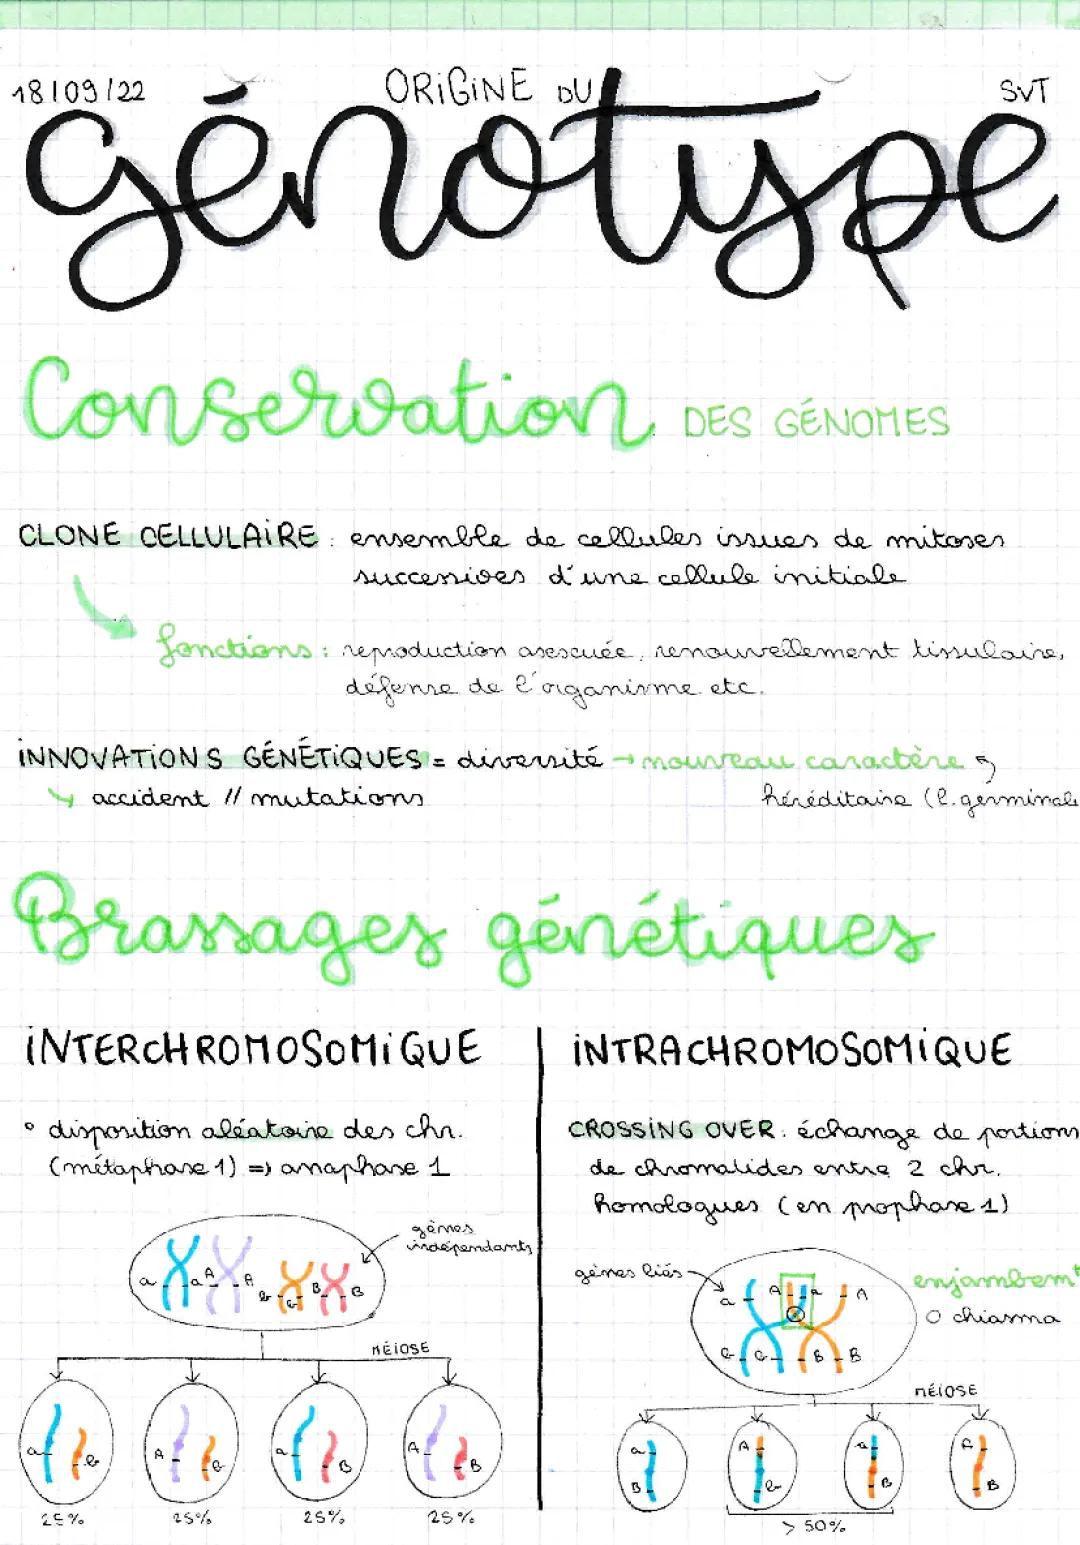 18/09/22 ORiGiNE DU SVT
génotype
Conservation DES GÉNOMES
CLONE CELLULAiRE : ensemble de cellules issues de mitoses
successives d'une cellule initiale
fonctions : reproduction asexuée, renouvellement tissulaire,
défense de l'organisme etc.
iNNOVATiONS GÉNÉTiQUES = diversité → nouveau caractère
↳ accident // mutations héréditaire (l. germinale
Brassages génétiques
iNTERCHROMOSOMiQUE
° disposition aléatoire des chr.
(métaphase 1) => anaphase 1
gènes
indépendants
a a A A b b B B
MÉIOSE
a b A b a B A B
25% 25% 25% 25%
iNTRACHROMOSOMiQUE
CROSSiNG OVER : échange de portions
de chromatides entre 2 chr.
homologues (en prophase 1)
gènes liés
enjambemt
O chiasma
a A a A
b b B B
MÉIOSE
a B A b a B A B
> 50%